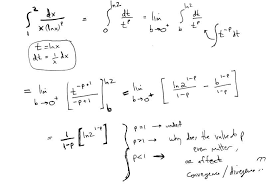 ∫₁² dx / x(lnx)^p = ∫₀^ln2 dt / t^p = lim b→0⁺ ∫_b^ln2 dt / t^p ∫ t^-p dt
t = lnx
dt = 1/x dx
= lim b→0⁺ [ t^-p+1 / -p+1 ]_b^ln2 = lim b→0⁺ [ ln2^1-p / 1-p - b^1-p / 1-p ]
= 1/1-p [ ln2^1-p ]
p=1 → undef
p>1 → why does the value of p
even matter,
p<1 → or affects
convergence / divergence ??